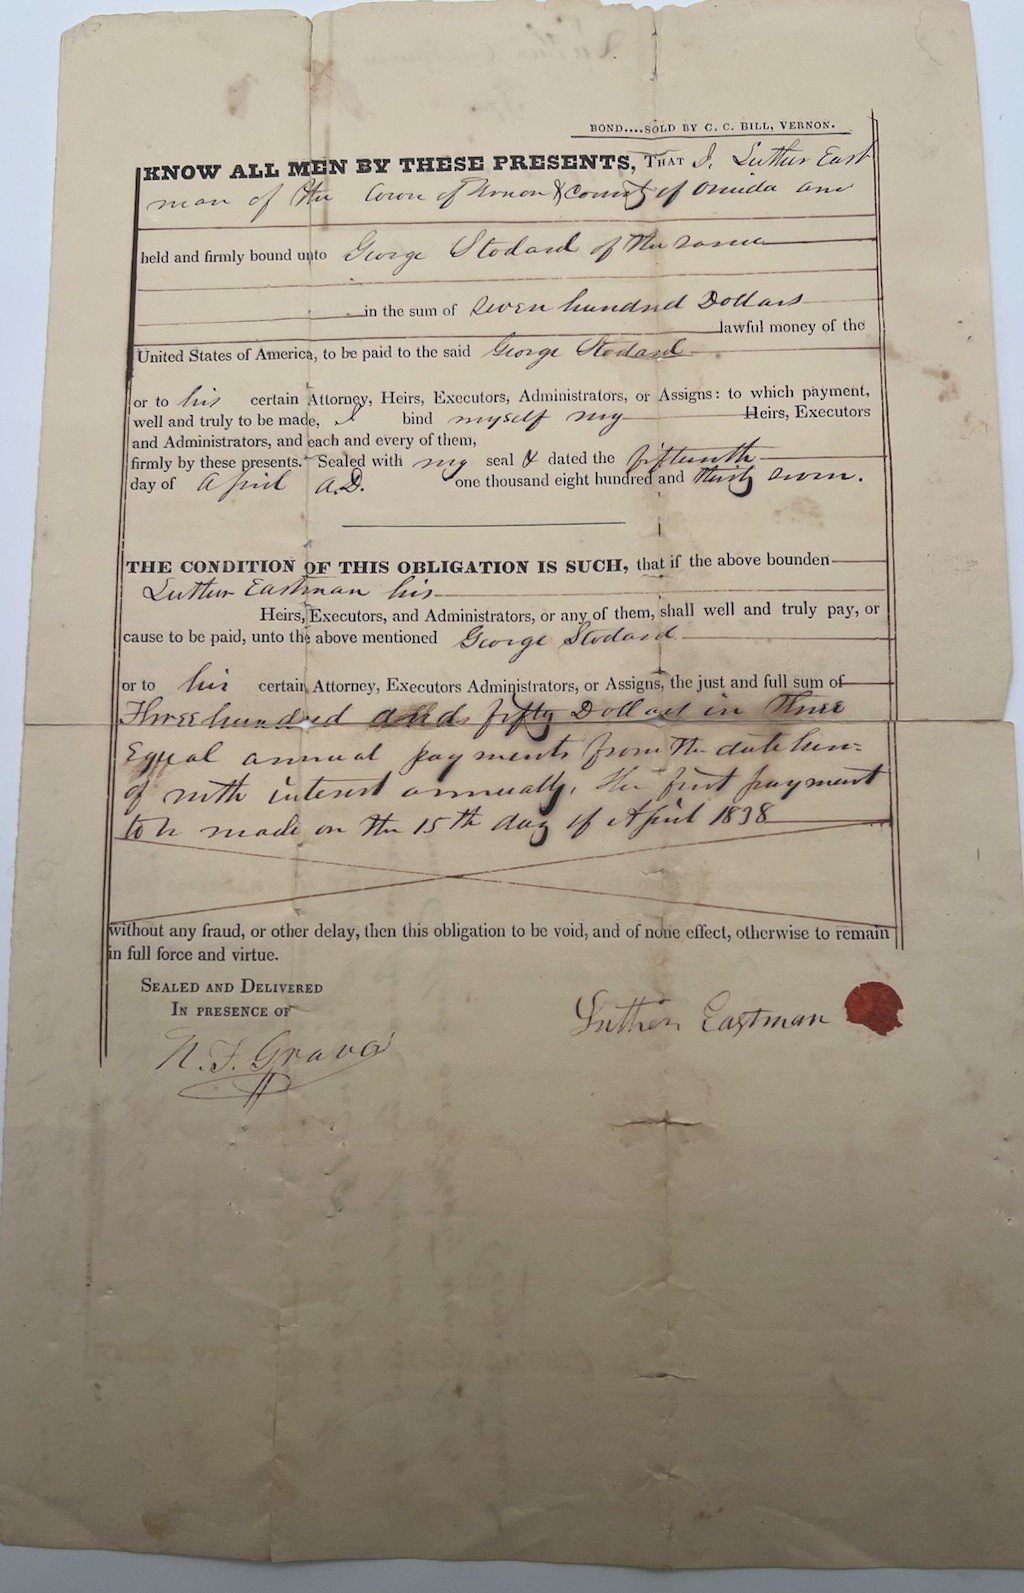 BOND....SOLD BY C. C. BILL, VERNON.
KNOW ALL MEN BY THESE PRESENTS, THAT I, Luther East
man of the Town of Vernon & County of Oneida am
held and firmly bound unto George Stodard of the same
in the sum of Seven hundred Dollars
lawful money of the
United States of America, to be paid to the said George Stodard
or to his certain Attorney, Heirs, Executors, Administrators, or Assigns: to which payment,
well and truly to be made, I bind myself my Heirs, Executors
and Administrators, and each and every of them,
firmly by these presents. Sealed with my seal & dated the fifteenth
day of April A.D. one thousand eight hundred and thirty seven.
THE CONDITION OF THIS OBLIGATION IS SUCH, that if the above bounden
Luther Eastman his
Heirs, Executors, and Administrators, or any of them, shall well and truly pay, or
cause to be paid, unto the above mentioned George Stodard
or to his certain Attorney, Executors Administrators, or Assigns, the just and full sum of
Three hundred and fifty Dollars in Three
Equal annual payments from the date here=
of with interest annually, the first payment
to be made on the 15th day of April 1838
without any fraud, or other delay, then this obligation to be void, and of none effect, otherwise to remain
in full force and virtue.
SEALED AND DELIVERED
IN PRESENCE OF
Luther Eastman